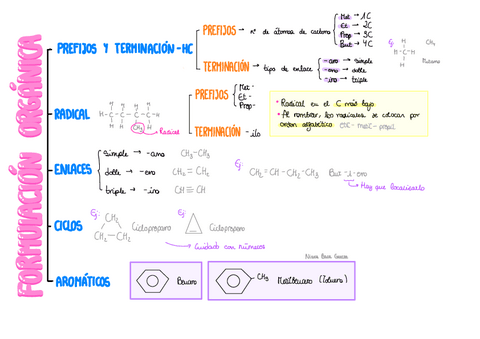 FORMULACIÓN ORGÁNICA
PREFIJOS Y TERMINACIÓN -HC
PREFIJOS → nº de átomos de carbono
Met → 1C
Et → 2C
Prop → 3C
But → 4C
TERMINACIÓN → tipo de enlace
-ano → simple
-eno → doble
-ino → triple
Ej:
H
H-C-H
H
CH4
Metano
RADICAL
H H H H
H-C-C-C-C-H
CH3
Radical
PREFIJOS
Met-
Et-
Prop-
TERMINACIÓN -ilo
• Radical en el C más bajo
• Al nombrar, los radicales se colocan por
orden alfabético
ENLACES
simple → -ano CH3-CH3
doble → -eno CH2=CH2
triple → -ino CH≡CH
Ej:
CH2=CH-CH2-CH3 But-1-eno
Hay que localizarlo
CICLOS
Ej:
CH2
CH2-CH2
Ciclopropano
Ej:
Ciclopropeno
Cuidado con números
AROMÁTICOS
Benceno
CH3
Metilbenceno (Tolueno)